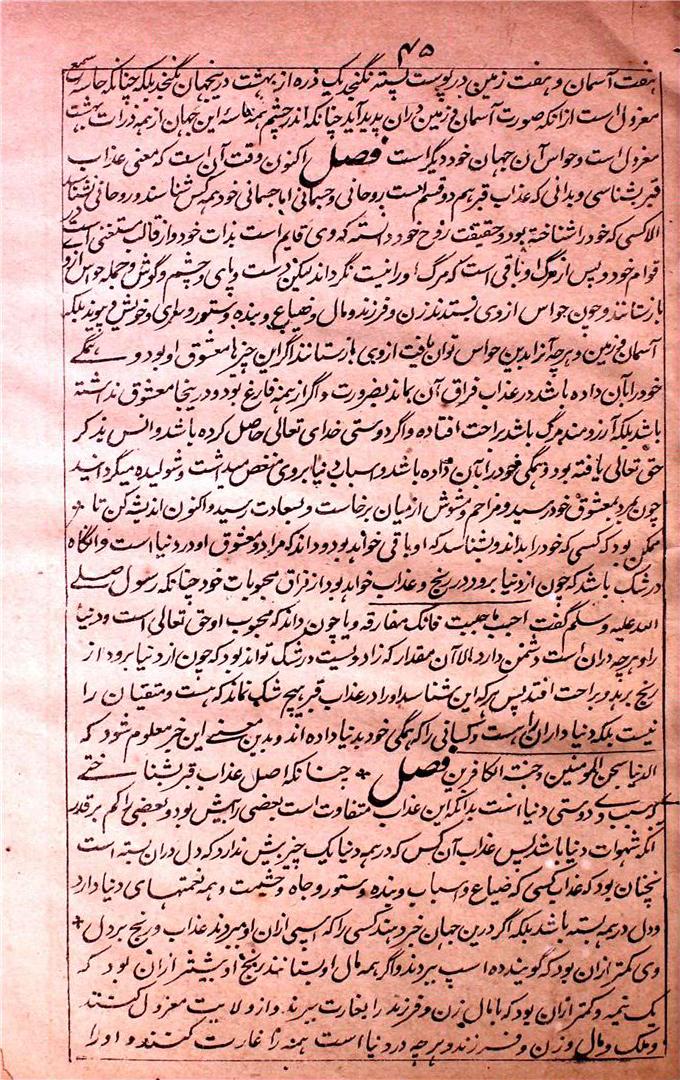 ۴۵
هفت آسمان و هفت زمین در پوست پسته نگنجد یک ذره از بهشت درینجهان نگنجد بلکه چنانکه حاسهٔ سمع
معزول است از آنکه صورت آسمان و زمین در ان پدید آید چنانکه اندر چشم همه حاسهٔ این جهان از همه ذرات بهشت
معزول است و حواس آن جهان خود دیگر است فصل اکنون وقت آن است که معنی عذاب
قبر بشناسی و بدانی که عذاب قبر هم دو قسم است روحانی و جسمانی اما جسمانی خود همه کس شناسند و روحانی نشناسد
الا کسی که خود را شناخته بود و حقیقت روح خود دانسته که وی قایم است بذات خود و از قالب مستغنی است در
قوام خود و پس از مرگ او باقی است که مرگ او را نیست نگرداند لیکن دست و پای و چشم و گوش و جمله حواس از و
باز ستانند و چون حواس از وی بستدند زن و فرزند و مال و ضیاع و بنده و ستور و سرای و خویش و پیوند بلکه
آسمان و زمین و هر چه آنرا بدین حواس توان یافت از وی باز ستانند اگر این چیزها معشوق او بود و همگی
خود را بآن داده باشد در عذاب فراق آن بماند بضرورت و اگر از همه فارغ بود و درینجا معشوق نداشته
باشد بلکه آرزومند مرگ باشد براحت افتاده و اگر دوستی خدای تعالی حاصل کرده باشد و انس بذکر
حق تعالی یافته بود و همگی خود را بآن داده باشد و اسباب دنیا بروی منغص میداشت و شولیده میگردانید
چون بمرد بمعشوق خود رسید و مزاحم و مشوش از میان برخاست و بسعادت رسید و اکنون اندیشه کن تا
ممکن بود که کسی که خود را بداند و بشناسد که او باقی خواهد بود و داند که مراد و معشوق او در دنیا است و انگاه
در شک باشد که چون از دنیا برود در رنج و عذاب خواهد بود از فراق محبوبات خود چنانکه رسول صلی
الله علیه وسلم گفت احبب ما احببت فانک مفارقه و یا چون داند که محبوب او حق تعالی است و دنیا
را و هر چه در ان است دشمن دارد الا آن مقدار که زاد ویست در شک تواند بود که چون از دنیا برود از
رنج برهد و براحت افتد پس هر که این شناسد او را در عذاب قبر هیچ شک نماند که هست و متقیان را
نیست بلکه دنیا داران را است و کسانی را که همگی خود بدنیا داده اند و بدین معنی این خبر معلوم شود که
الدنیا سجن المومنین و جنت الکافرین فصل چنانکه اصل عذاب قبر بشناختی
که سبب وی دوستی دنیا است بدانکه این عذاب متفاوت است بعضی را بیش بود و بعضی را کم بر قدر
آنکه شهوات دنیا باشد پس عذاب آن کس که در همه دنیا یک چیز بیش ندارد که دل در ان بسته است
نچنان بود که عذاب کسی که ضیاع و اسباب و بنده و ستور و جاه و حشمت و همه نعمتهای دنیا دارد
و دل در همه بسته باشد بلکه اگر درین جهان خبر دهند کسی را که اسپی از ان او ببردند عذاب و رنج بر دل
وی کمتر از ان بود که گویند ده اسپ ببردند و اگر همه مال او بستانند رنج او بیشتر از ان بود که
یک نیمه و کمتر از ان بود که با مال زن و فرزند را بغارت ببرند و از ولایت معزول کنند
و ملک و مال و زن و فرزند و هر چه در دنیا است همه را غارت کنند و او را